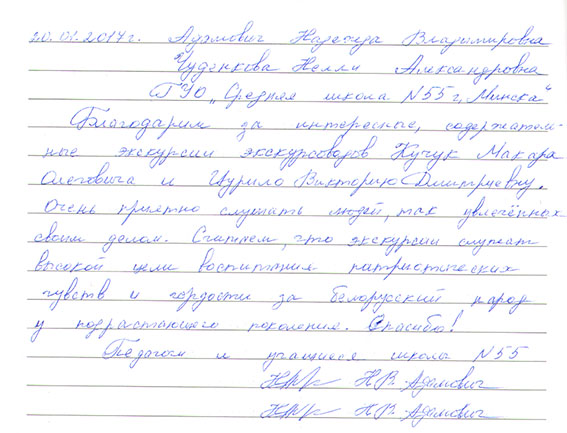 20.01.2017г. Адамович Надежда Владимировна
Чуденкова Нелли Александровна
ГУО „Средняя школа N55 г. Минска"
Благодарим за интересные, содержатель-
ные экскурсии экскурсоводов Кучук Макара
Олеговича и Цурило Викторию Дмитриевну.
Очень приятно слушать людей, так увлечённых
своим делом. Считаем, что экскурсии служат
высокой цели воспитания патриотических
чувств и гордости за белорусский народ
у подрастающего поколения. Спасибо!
Педагоги и учащиеся школа N55
Н.В. Адамович
Н.В. Адамович